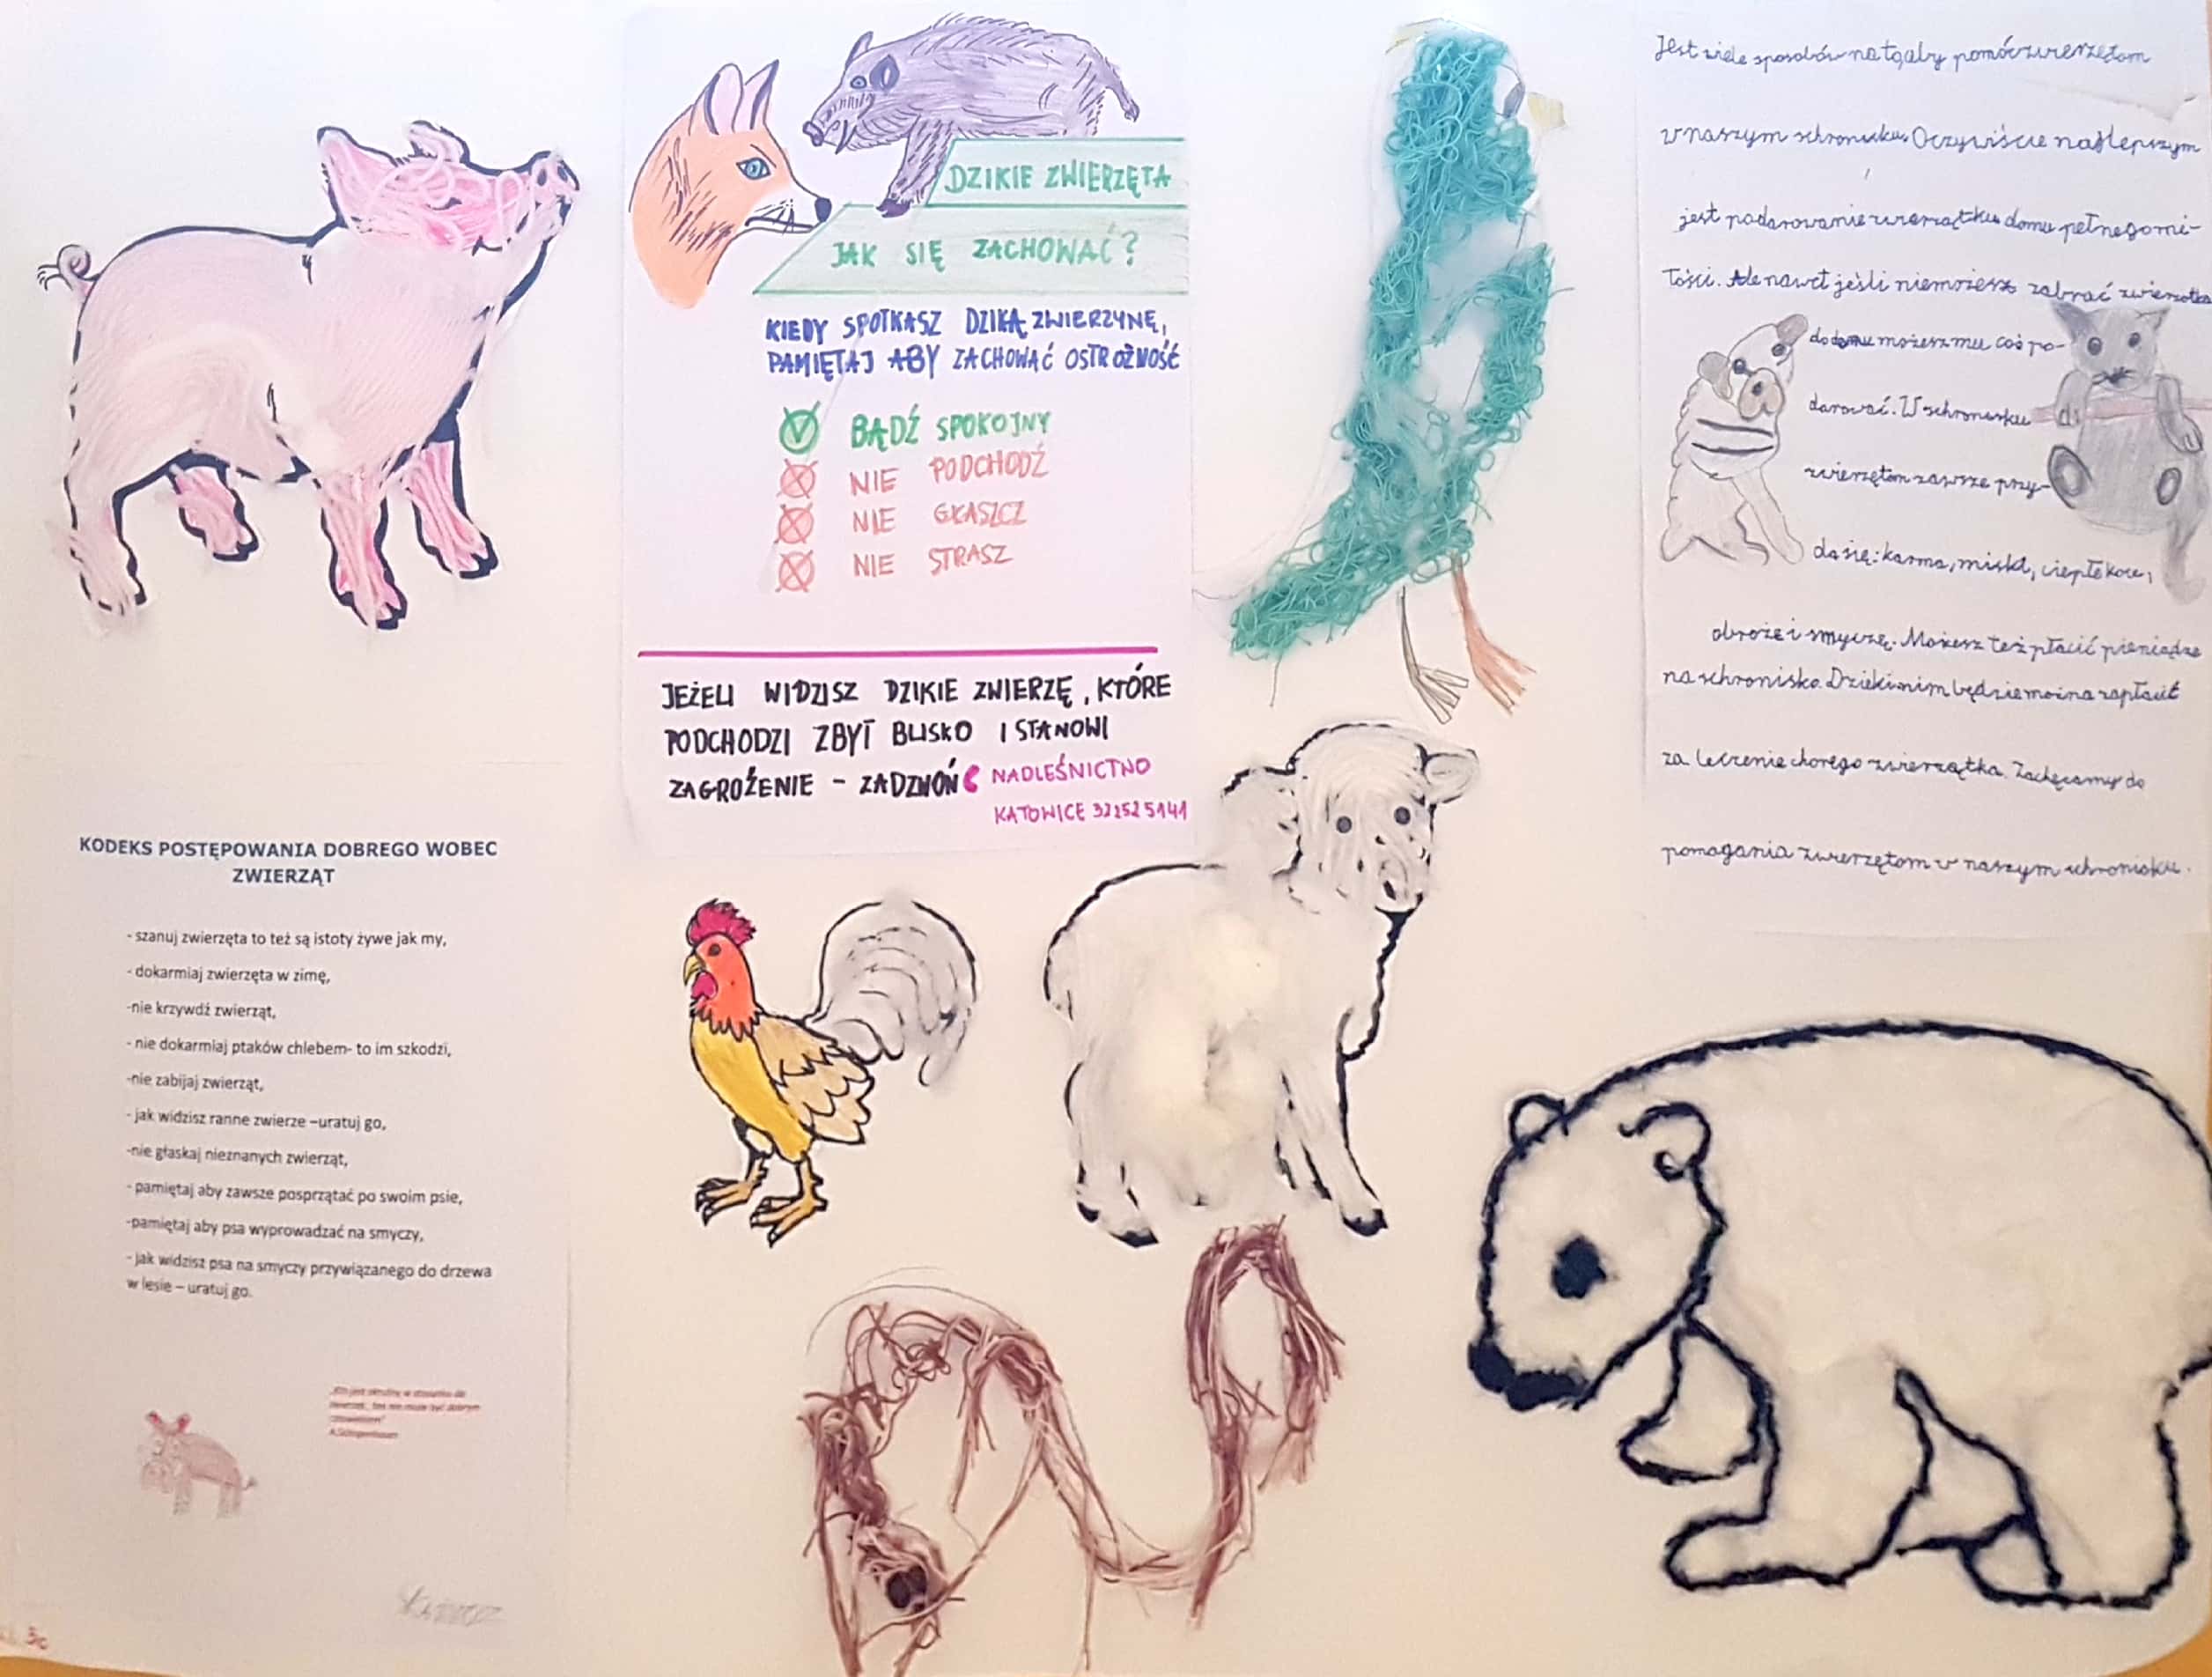 DZIKIE ZWIERZĘTA
JAK SIĘ ZACHOWAĆ?
KIEDY SPOTKASZ DZIKĄ ZWIERZYNĘ,
PAMIĘTAJ ABY ZACHOWAĆ OSTROŻNOŚĆ
BĄDŹ SPOKOJNY
NIE PODCHODŹ
NIE GŁASZCZ
NIE STRASZ
JEŻELI WIDZISZ DZIKIE ZWIERZĘ, KTÓRE
PODCHODZI ZBYT BLISKO I STANOWI
ZAGROŻENIE - ZADZWOŃ NADLEŚNICTWO
KATOWICE 322525141
Jest wiele sposobów na to aby pomóc zwierzętom
w naszym schronisku. Oczywiście najlepszym
jest podarowanie zwierzątku domu pełnego mi-
łości. Ale nawet jeśli niemożesz zabrać zwierzątka
do domu możesz mu coś po-
darować. W schronisku
zwierzętom zawsze przy-
da się: karma, miski, ciepłe koce,
obroże i smycze. Możesz też płacić pieniądze
na schronisko. Dzięki nim będzie można zapłacić
za leczenie chorego zwierzątka. Zachęcamy do
pomagania zwierzętom w naszym schronisku.
KODEKS POSTĘPOWANIA DOBREGO WOBEC
ZWIERZĄT
- szanuj zwierzęta to też są istoty żywe jak my,
- dokarmiaj zwierzęta w zimę,
-nie krzywdź zwierząt,
- nie dokarmiaj ptaków chlebem- to im szkodzi,
-nie zabijaj zwierząt,
- jak widzisz ranne zwierze –uratuj go,
-nie głaskaj nieznanych zwierząt,
- pamiętaj aby zawsze posprzątać po swoim psie,
-pamiętaj aby psa wyprowadzać na smyczy,
- jak widzisz psa na smyczy przywiązanego do drzewa
w lesie – uratuj go.